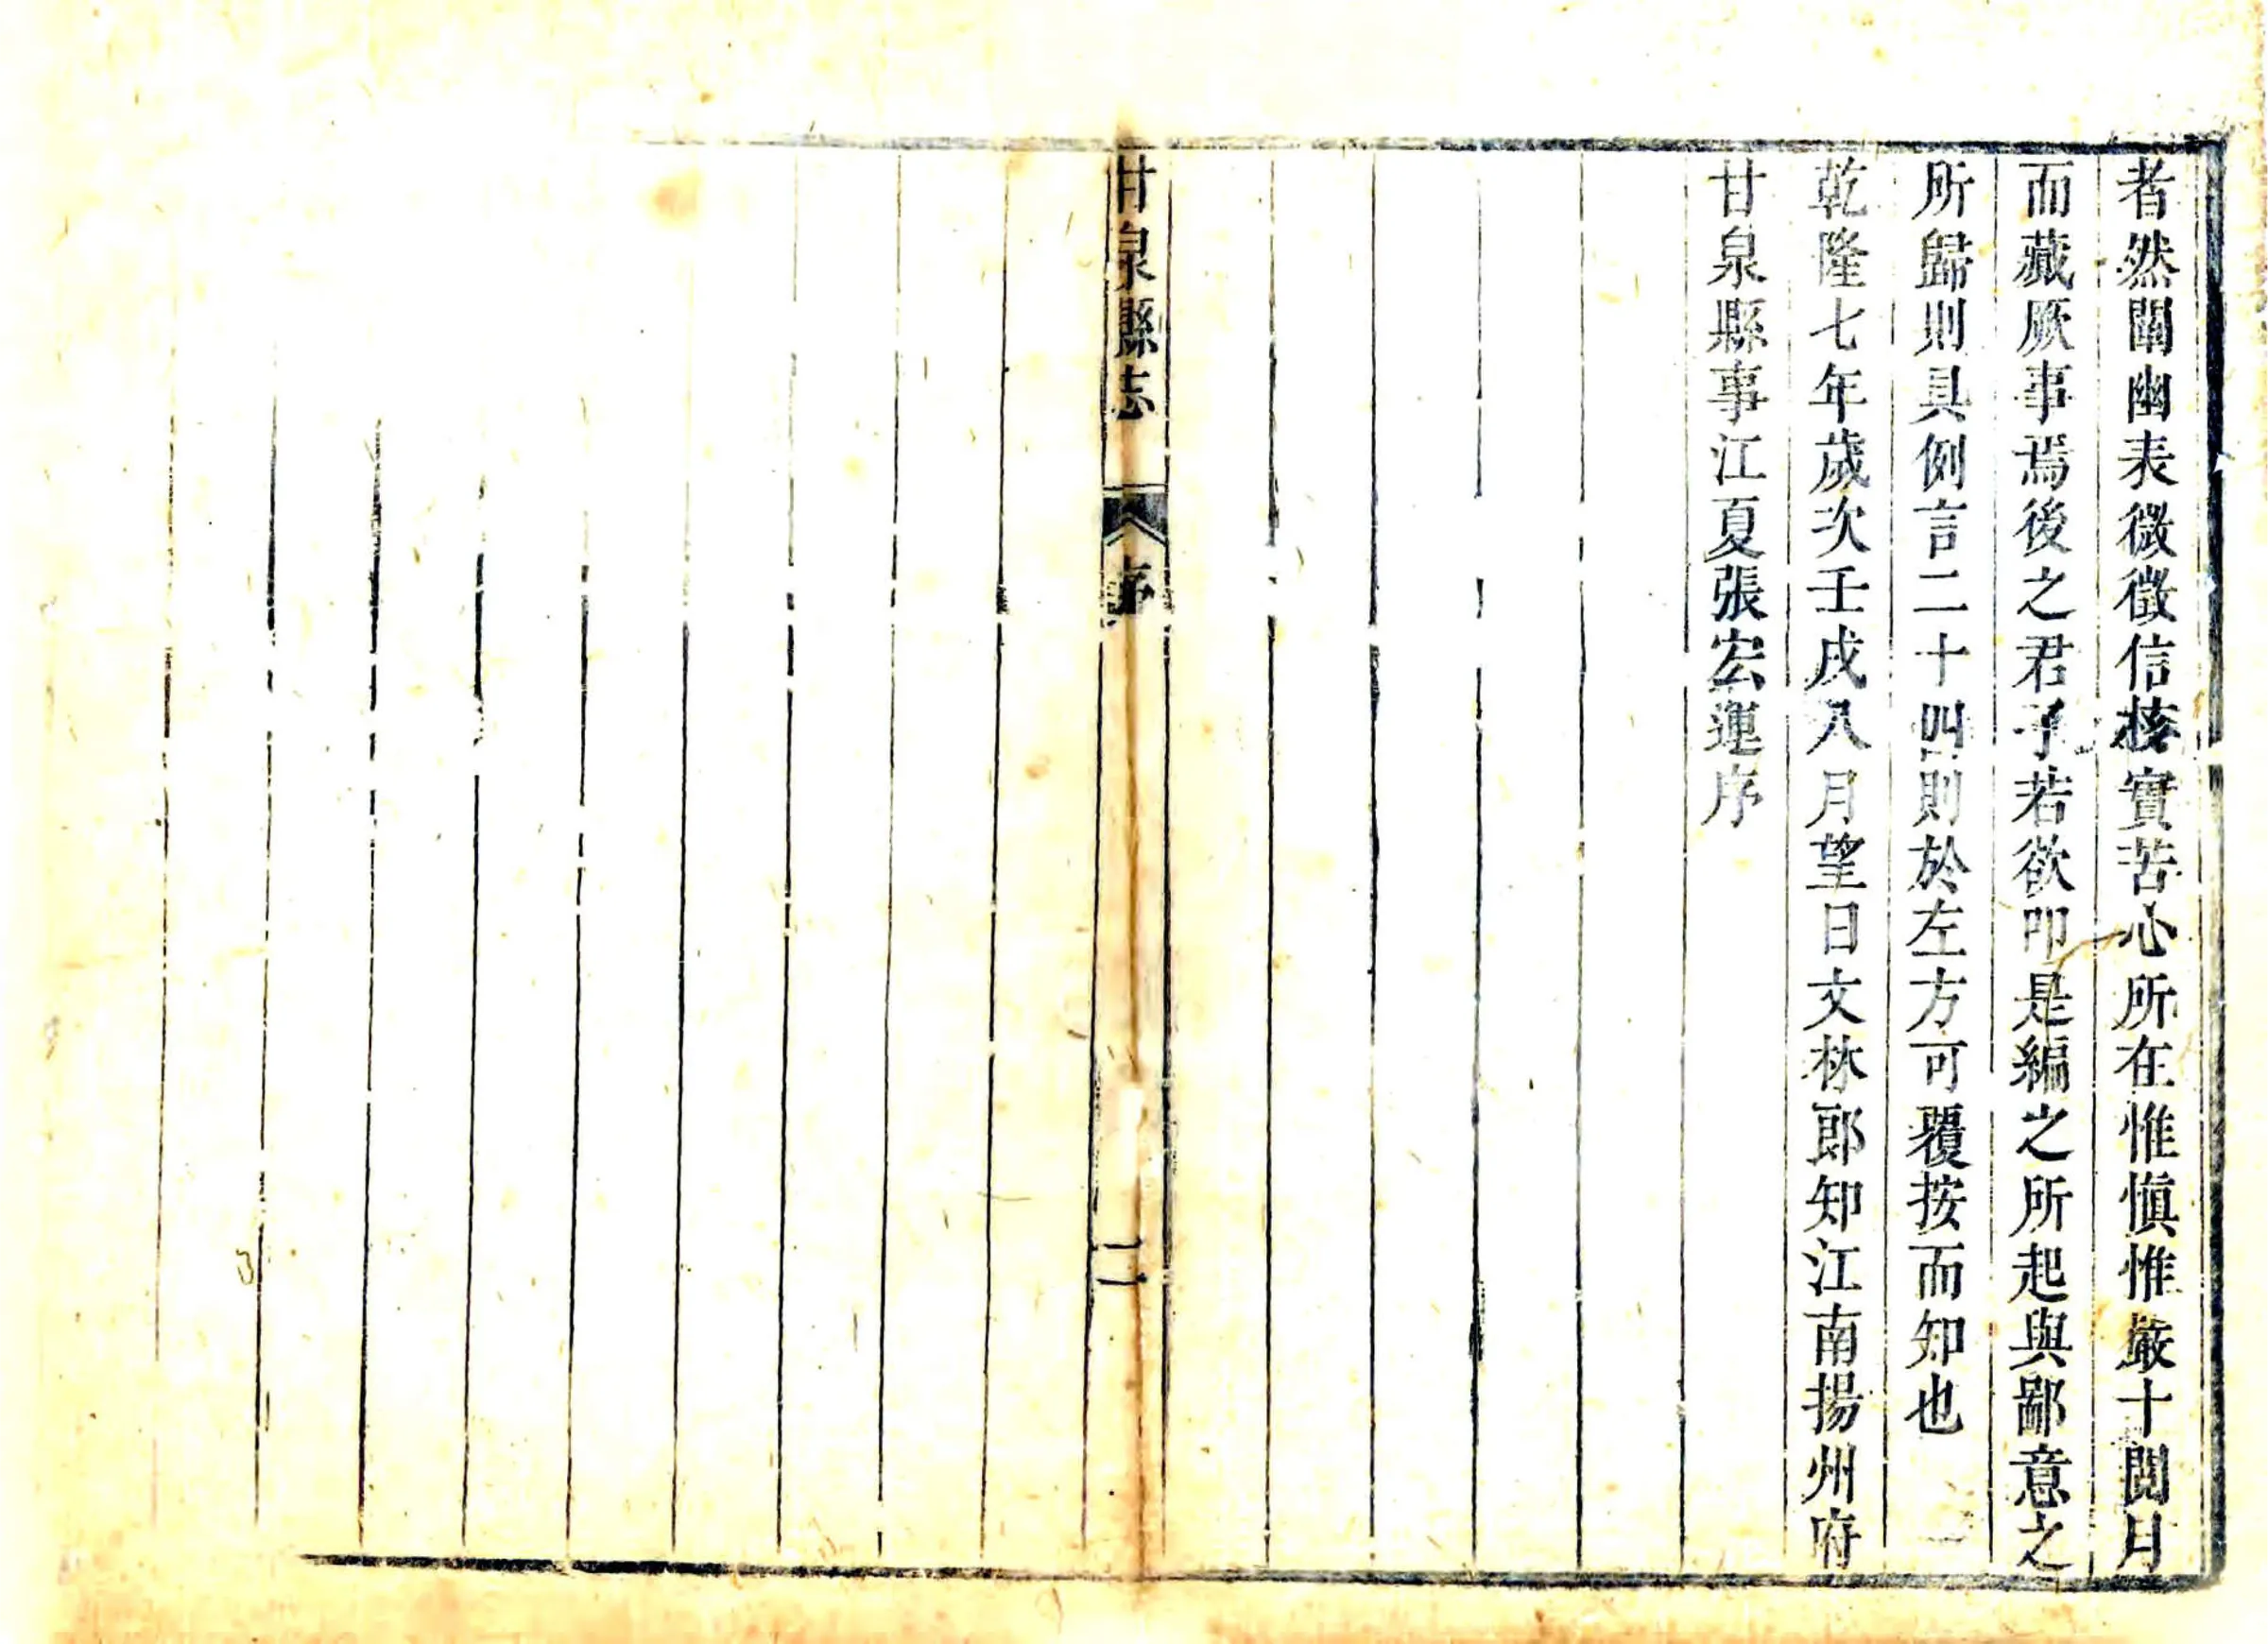 者然闡幽表微徵信核實苦心所在惟愼惟嚴十閱月
而蕆厥事焉後之君子若欲叩是編之所起與鄙意之
所歸則具例言二十四則於左方可覆按而知也
乾隆七年歲次壬戌八月望日文林郎知江南揚州府
甘泉縣事江夏張宏運序
甘泉縣志 序 二